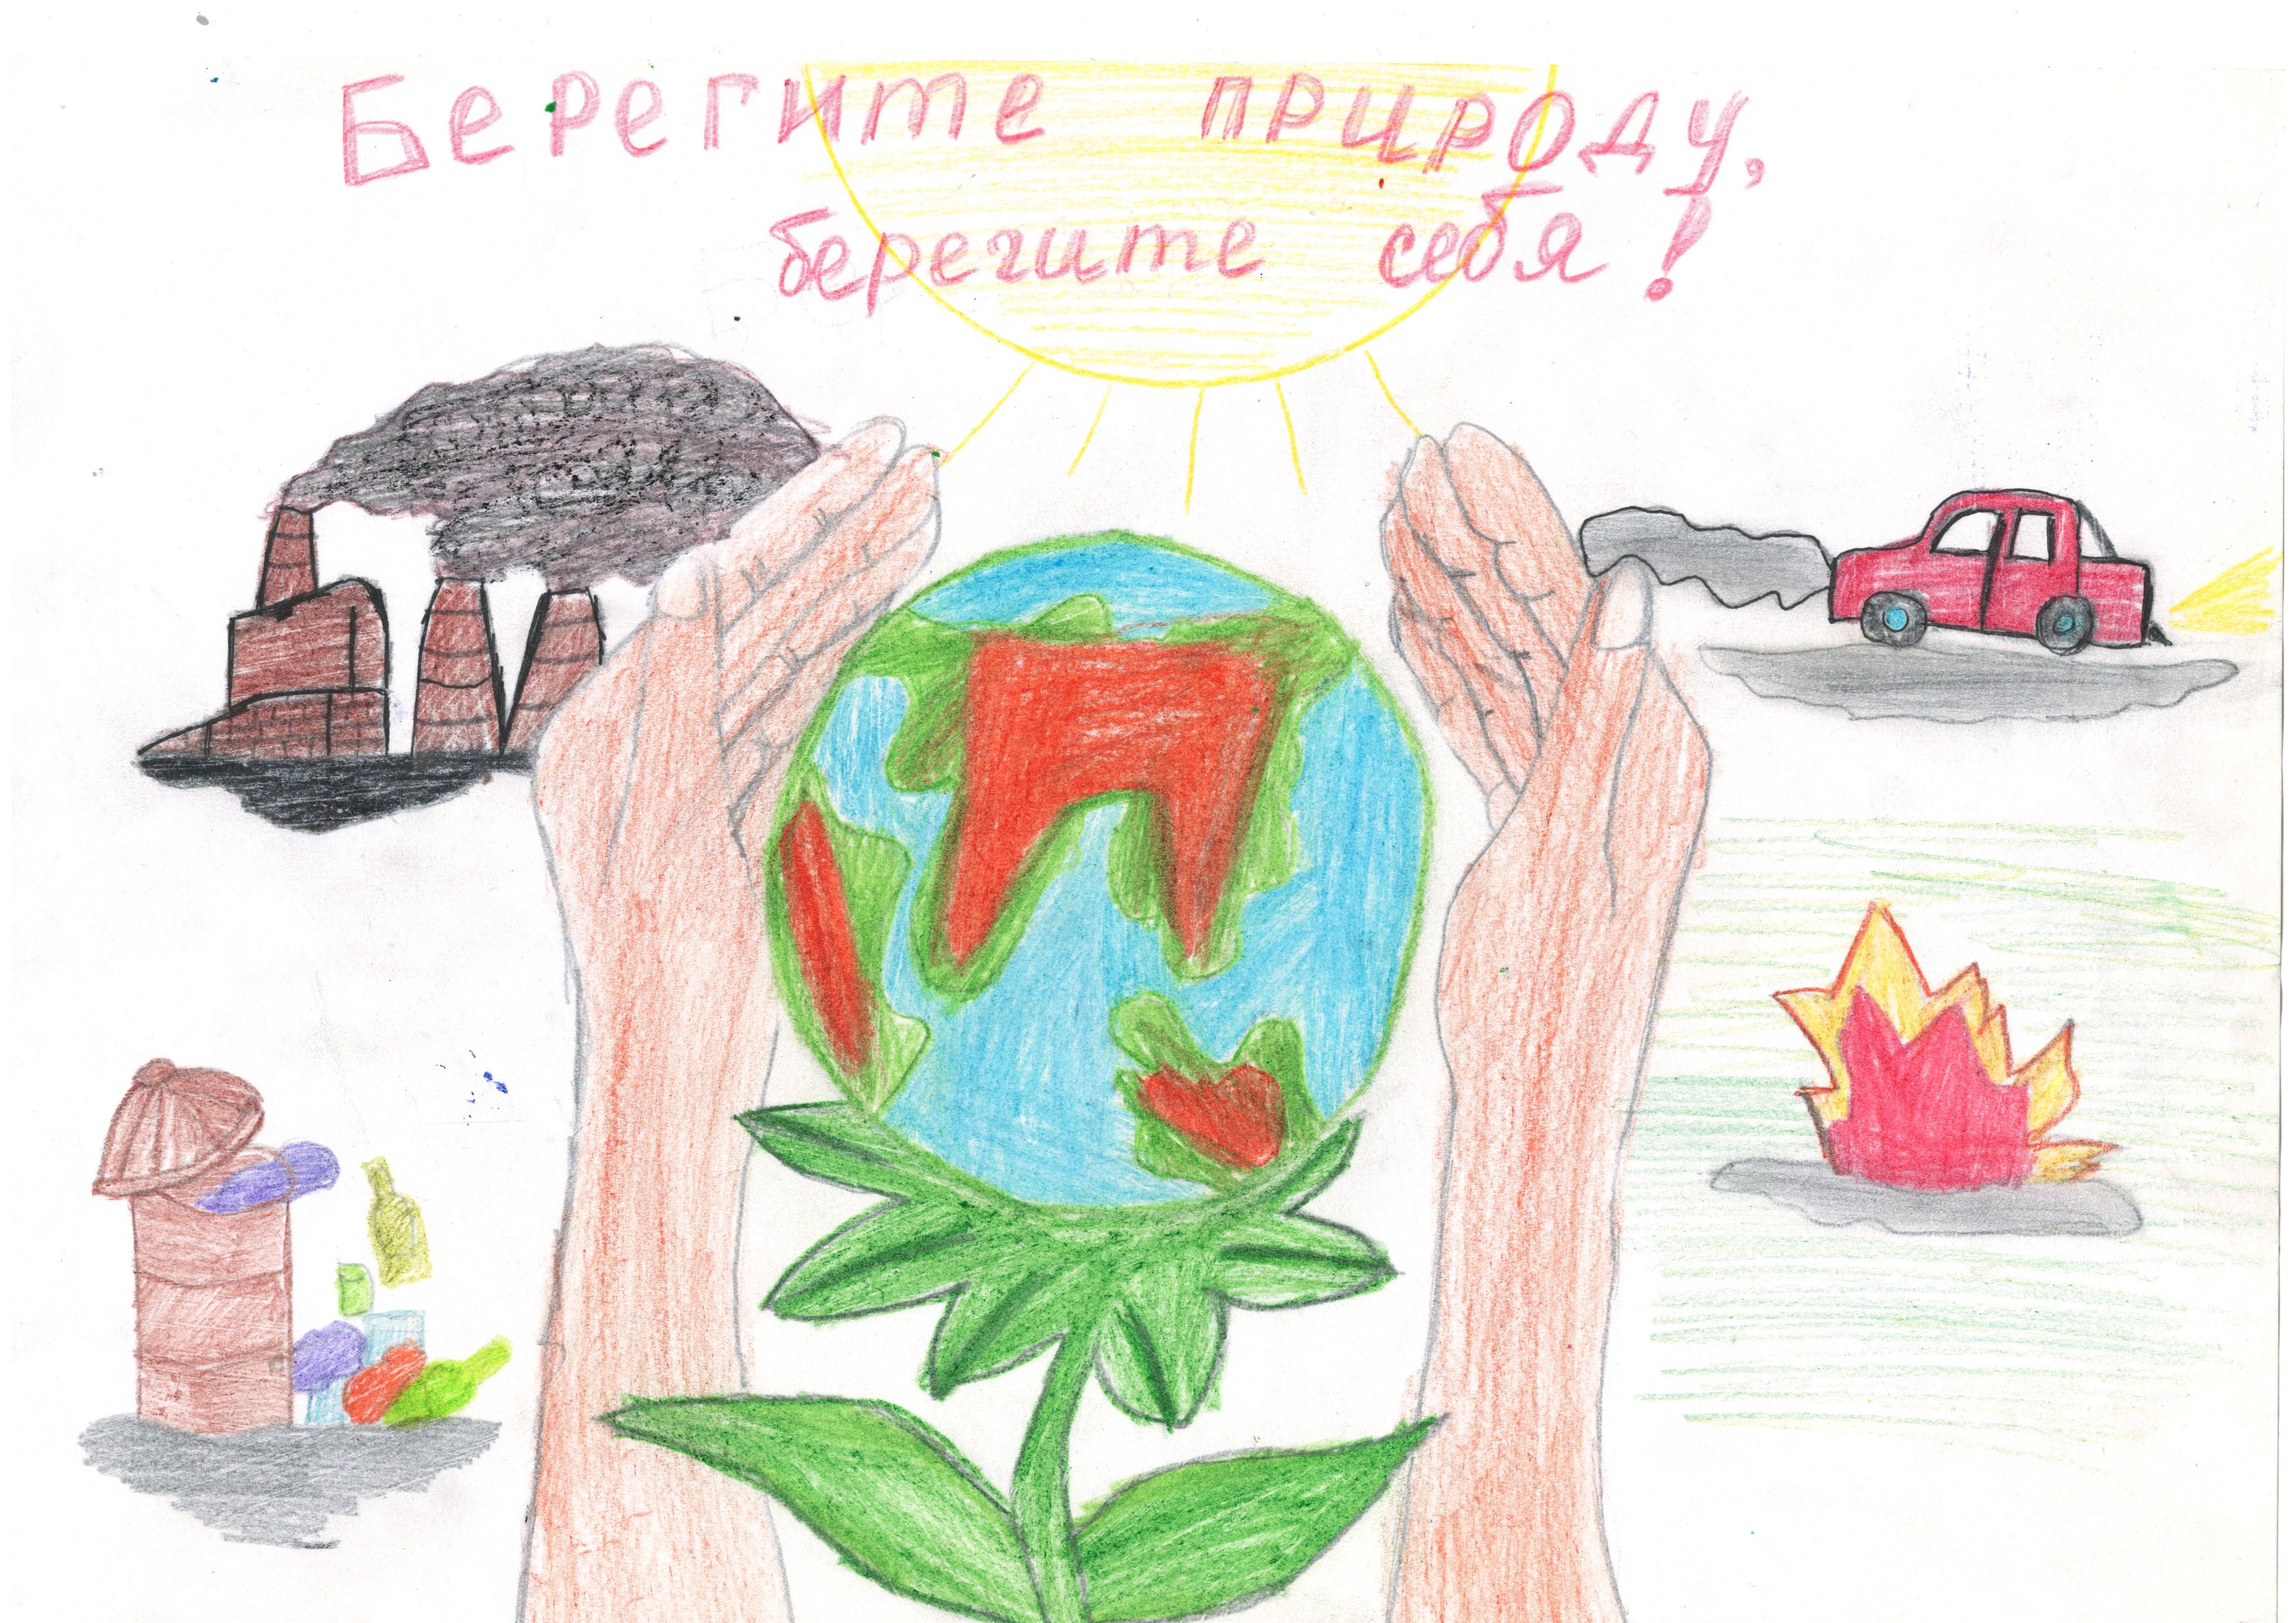 Берегите природу,
берегите себя!